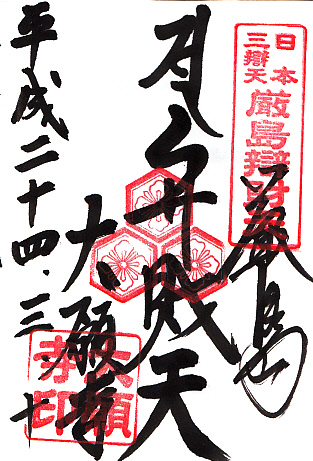 日本
三辯天
厳島辯財天
厳島
弁財天
大願寺
大願寺印
平成二十四.三.